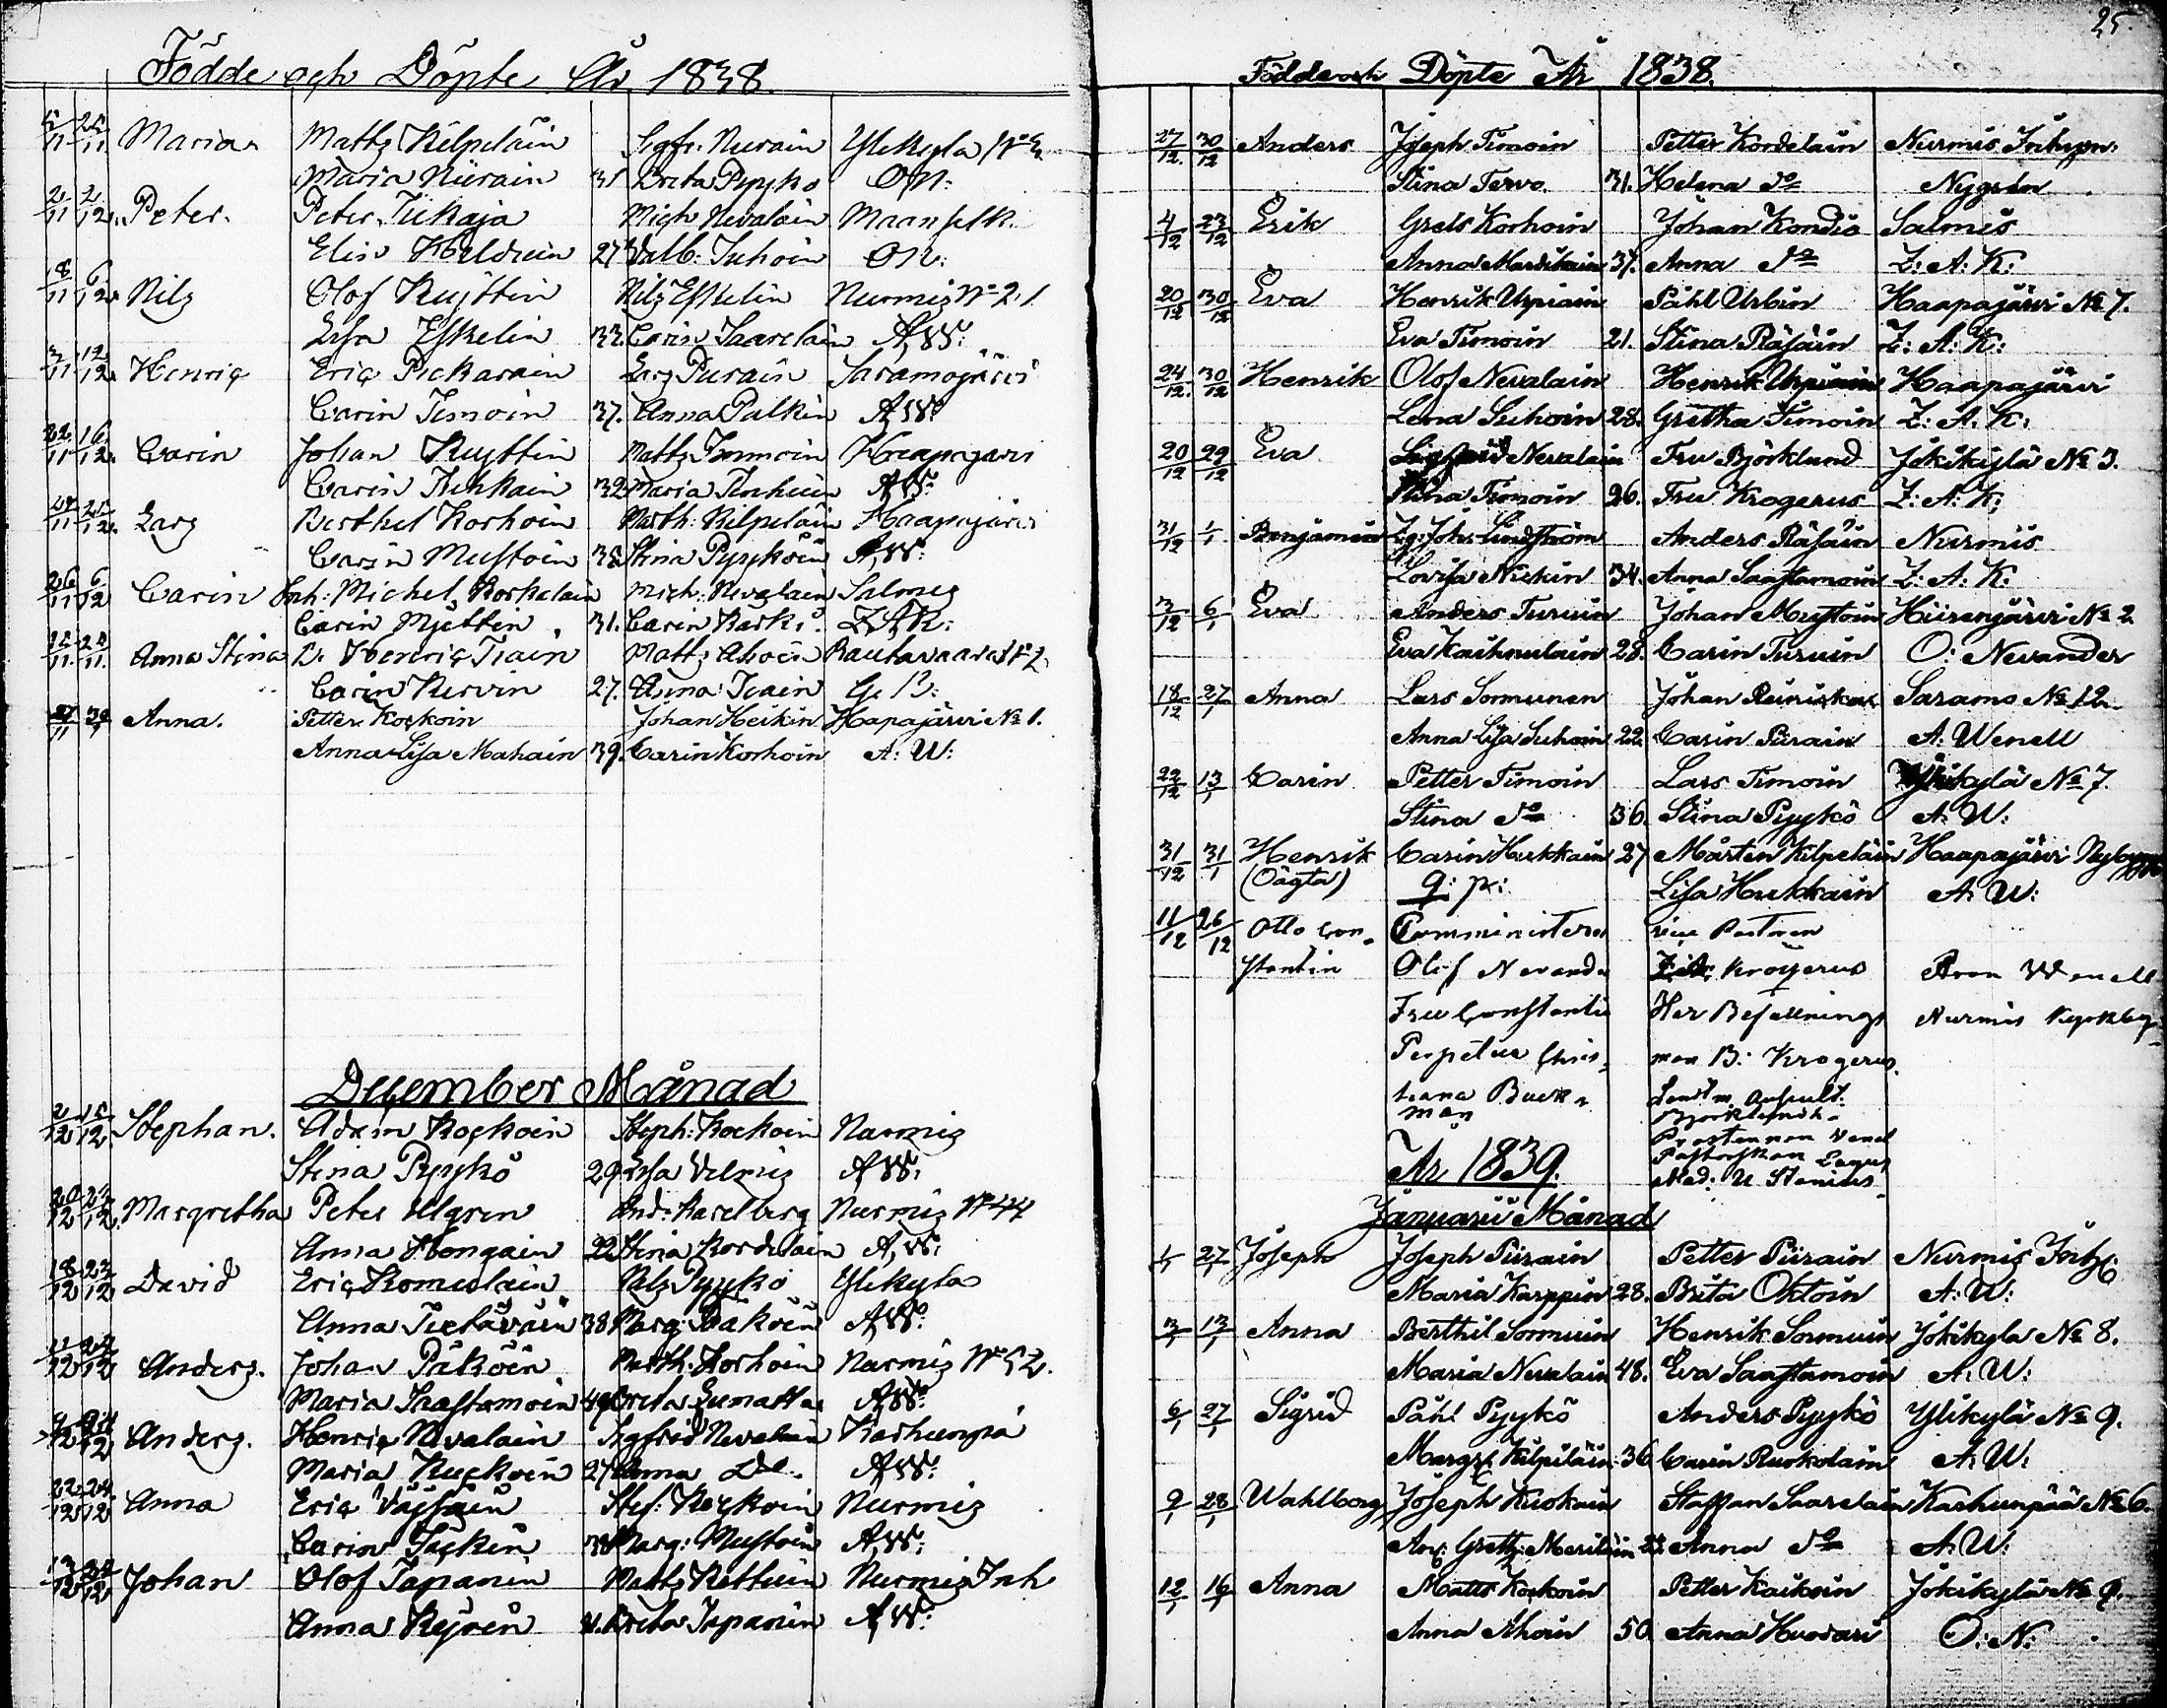 Födde och Döpte År 1838.
5/11 25/11 Maria Matts Kilpeläin Sigfr: Nurain Ylikyla
Maria Kiirain 31 Breta Pyykö ON:
2/11 2/12. Peter. Peter Tiikaja Mich Nevalain Maanselk.
Elis 27 Valb: Juhoin ON:
8/11 6/12. Nils Olof Kujttin Nils Eskelin Nurmis No 21
Lisa Eskelin 33. Carin Saarelain A,W:
3/11 12/12. Henric Eric Pickarain Lars Purain Saramojärvi
Carin Timoin 37. Anna Pulkin A,W:
22/11 16/12. Carin Johan Kujttin Matts Immoin Haapajarvi
Carin 32 Maria A,W:
25/12. Lars Berthel Korhoin Marth: Kilpeläin Haapajärvi
Carin Mustoin 35 Stina Pyyköin A,W:
26/11 6/12 Carin Inh: Michel Koskelain Mich: Nevalain Salmis
Carin Mjettin 31. Carin Karki Z.A.K:
12/11. 24/11. Anna Stina D. Henric Train Matts Ahoin Rautavaara No 2.
Carin Kervin 27. Anna G. B:
Anna. Petter Kockoin Johan Heikin Hapajärvi No 1.
Anna Lisa Mahain 39. Carin Korhoin A: W:
December Månad
2/12 15/12 Stephan. Adam Kockoin Steph: Kockoin Nurmis
Stina Pyykö 29 Lisa Velmis A,W:
20/12 23/12 Margretha Peter Ulgren And: Karelberg Nurmis No 44
Anna Hongain 22 Stina Kordelain A,W:
18/12 23/12 David Eric Komulain Nils Pyykö Ylikyla
Anna Tiertäväin 38 Marg: Päköin A,W:
11/12 24/12 Anders. Johan Päköin Marth: Korhoin Nurmis No 52.
Maria Saastamoin 49 Breta A,W:
4/12 24/12 Anders. Henric Nevalain Sigfrid Nevalain Karhunpä
Maria Kuckoin 27 Anna Do. A,W:
22/12 24/12 Anna Eric Väisäin Stef: Kockoin Nurmis
Carin Täckin 38 Marg: Mustoin A,W:
13/12 Johan Olof Tapanin Matts Kettuin Nurmis Inh
Anna Keyoin Breta Tapanin A,W:
25.
Födde och Döpte År 1838.
27/12. 30/12 Anders Joseph Timoin Petter Kordelain Nurmis Inhysn:
Stina Tervo. 31. Helena do Nygrén
4/12 23/12 Erik Grels Korhoin Johan Kondia Salmis
Anna 37. Anna do Z: A: K:
20/12 30/12 Eva Henrik Urpiain Påhl Urbin Haapajärvi No 7.
Eva Timoin 21. Stina Räsäin Z: A: K:
24/12. 30/12 Henrik Olof Nevalain Henrik Urpiain Haapajärvi
Lena Juhoin 28. Gretha Timoin Z: A: K:
20/12 29/12 Eva Sigfrid Nevalain Fru Björklund Jokikylä No 3.
Stina Timoin 26. Fru Krogerus Z: A: K:
31/12 1/1 Benjamin Zg: Joh: Lindström Anders Räsäin Nurmis
Lovisa Nickin 34. Anna Saastamoin Z: A: K:
3/12 6/1 Eva Anders Turuin Johan Mustoin Hiirenjärvi No 2
Eva Kaihnulain 28. Carin Turuin O: Nevander
18/12 27/1 Anna Lars Sormunen Johan Saramo No 12.
Anna Lisa Juhoin 22. Carin Piirain A: Wenell
22/12 13/1 Carin Petter Timoin Lars Timoin Ylikylä No 7.
Stina do 36. Stina Pyykö A: W:
31/12 31/1 Henrik Carin Hukkain 27 Mårten Kilpeläin Haapajärvi
(Oägta) q: p: Lisa Hukkain A: W:
11/12 26/12 Otto Con- Comministern vice Pastoren
stantin Olof Nevander Z: A: Krogerus Aron Wenell
Fru Constantia Her Befallnings Nurmis Kyrkby
Perpetua Chris- man B: Krogerus
tiana Back-
man
Björklund
Prostinnan
År 1839.
Mad: U Stenius
Januarii Månad
1/1 27/1 Joseph Joseph Piirain Petter Piirain Nurmis Inhys:
Maria Karppin 28. Brita Oktoin A: W:
3/1 13/1 Anna Berthil Sormuin Henrik Sormuin Jokikyla No 8.
Maria Nevalain 48. Eva Saastamoin A: W:
6/1 27/1 Sigrid Påhl Pyykö Anders Pyykö Ylikylä No 9.
Margr: Kilpiläin 36 Carin Ruokolain A: W:
9/1 28/1 Wahlborg Joseph Kuokain Staffan Saarelain Karhunpää No 6.
An: Greth: Meriläin Anna do A: W:
12/1 16/1 Anna Matts Kockoin Petter Kaikoin Jokikylä No 9.
Anna Ahoin 50 Anna Huovari O: N: